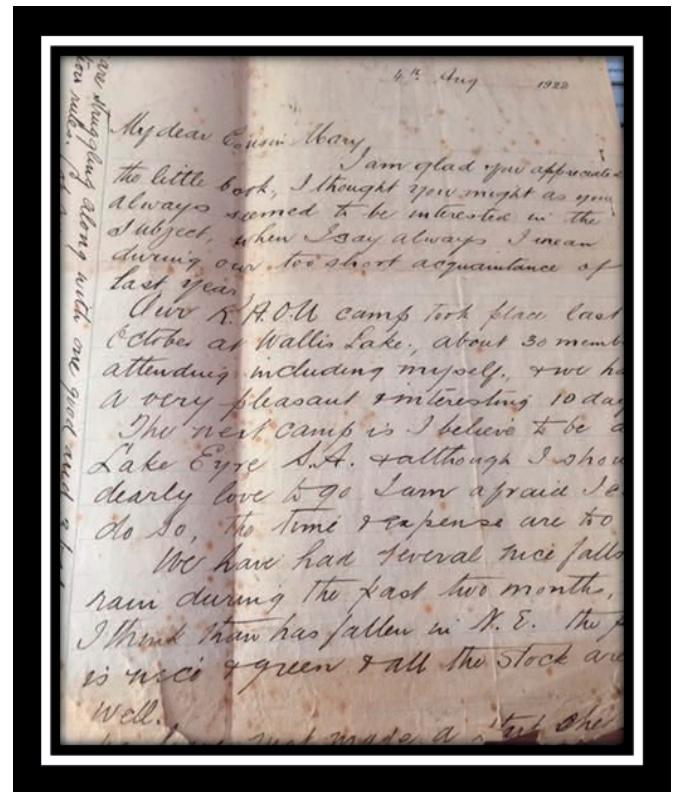 4th Aug 1928
My dear Cousin Mary
I am glad you appreciated
the little book, I thought you might as you
always seemed to be interested in the
subject, when I say always I mean
during our too short acquaintance of
last year
Our R.A.O.U camp took place last
October at Wallis Lake, about 30 memb
attending including myself, & we ha
a very pleasant & interesting 10 day
The next camp is I believe to be a
Lake Eyre S.A. & although I shou
dearly love to go I am afraid I c
do so, the time & expense are too
We have had several nice falls
rain during the past two months,
I think than has fallen in N.E. the
is nice & green & all the stock are
well.
just made a
are struggling along with one good and